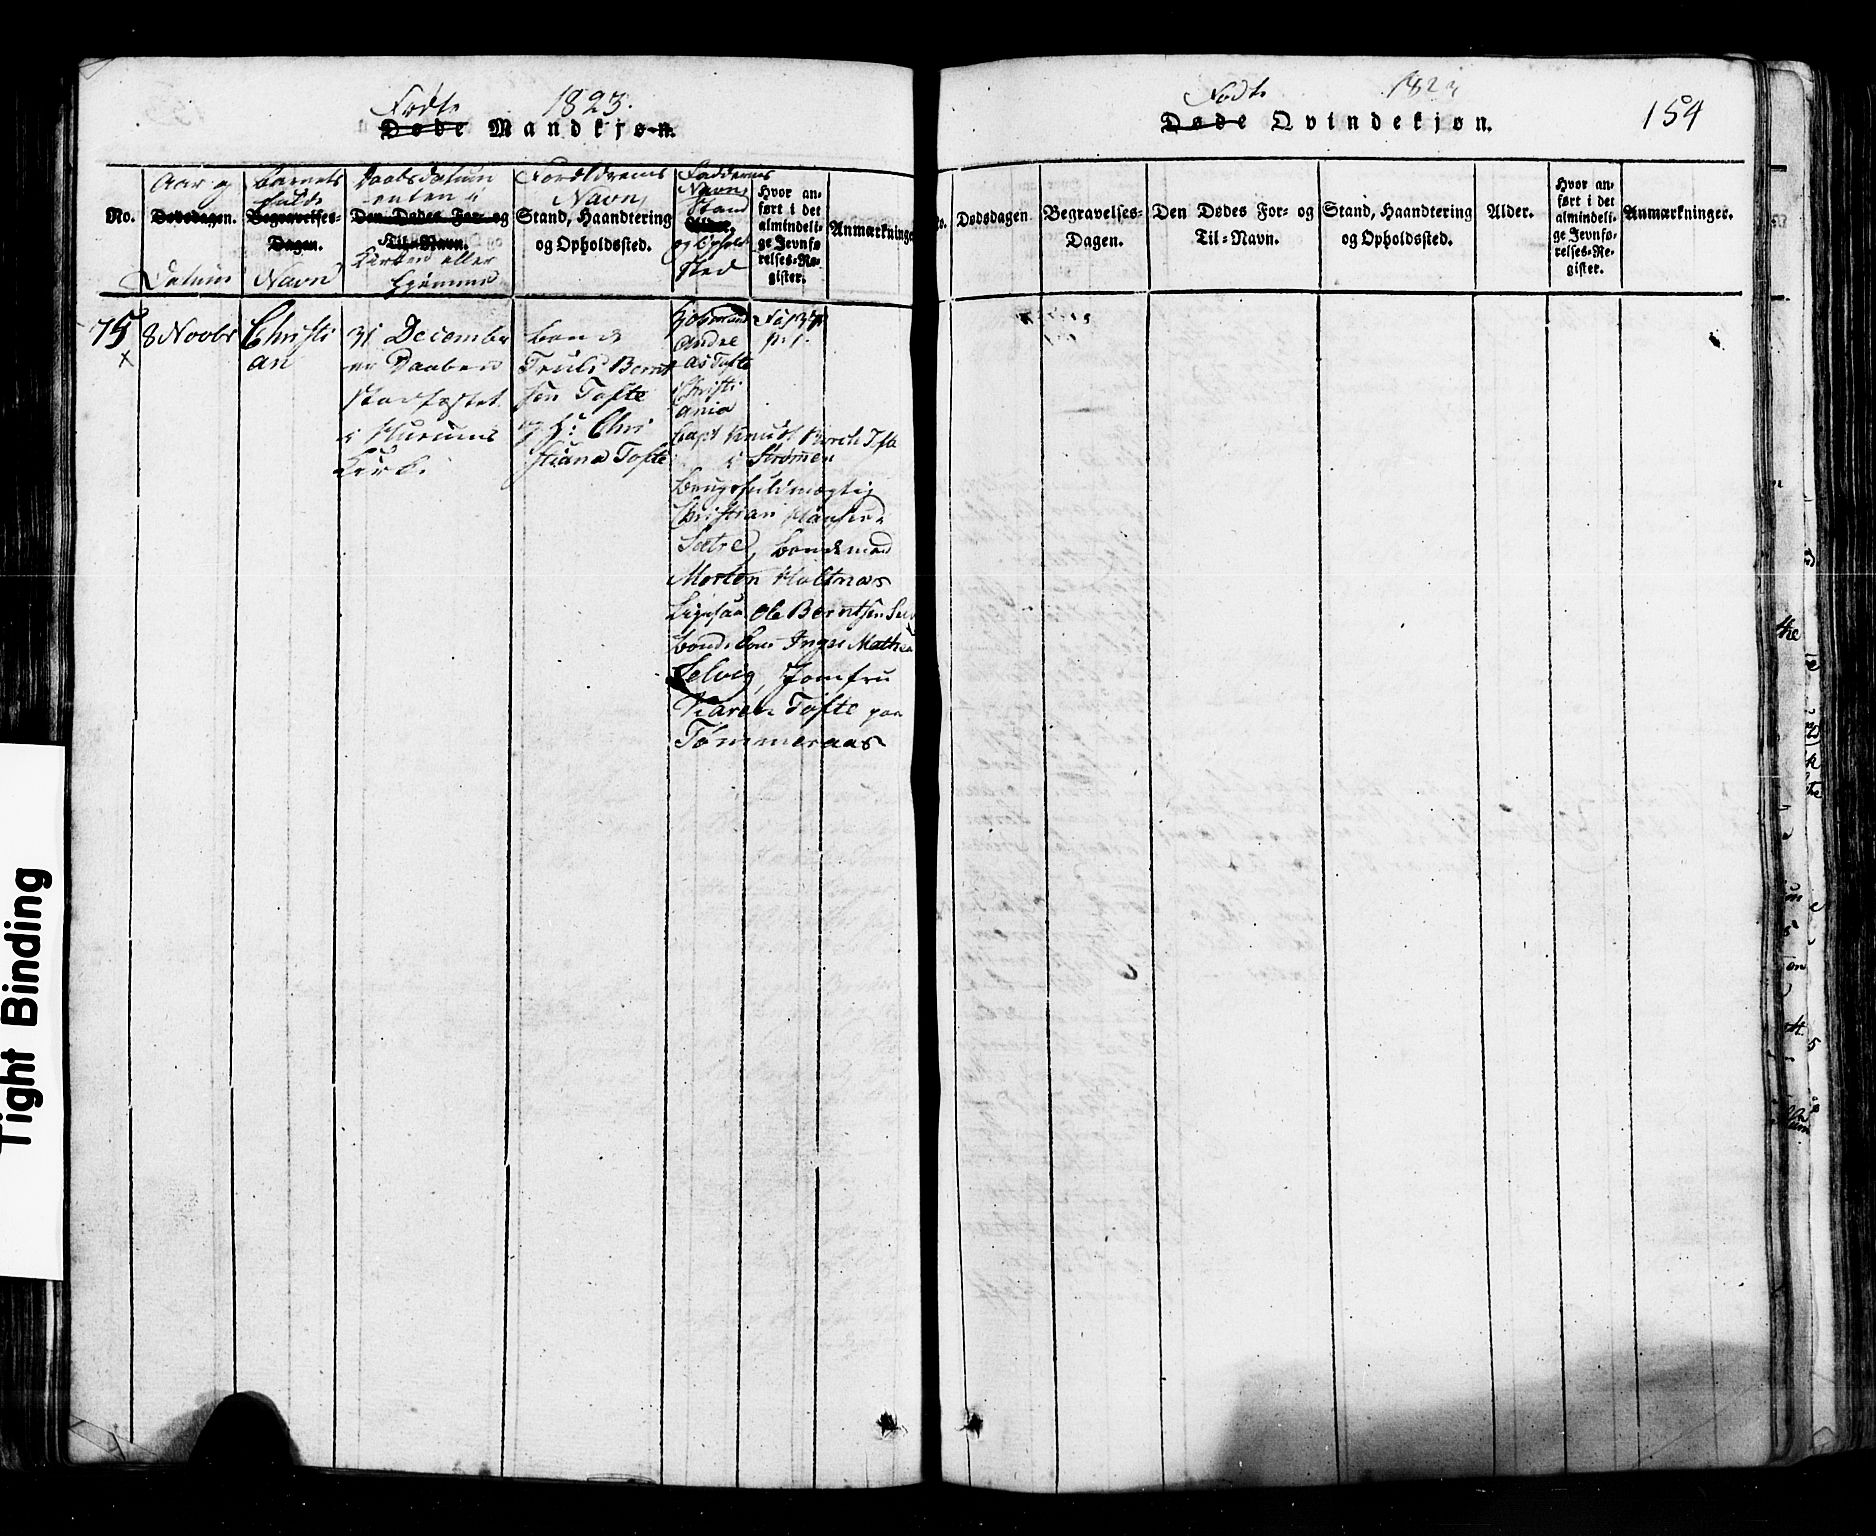 Fødte 1823.
Døde Mandkjøn.
Aar og
Dødsdagen.
Datum
No.
Barnets
fulde
Begravelses-
Dagen.
Navn
Daabsdatum
enten i
Den Dødes For- og
Til-Navn.
Kirken eller
hjemme
Forældrenes
Navn,
Stand, Haandtering
og Opholdssted.
Faddernes
Navn,
Stand
Alder.
og Opholds
sted
Hvor an-
ført i det
almindeli-
ge Jevnfø-
relses-Re-
gister.
Anmærkninger
75 8 Novbr Christi
an
31 December
er Daaben
stadfæstet
i Hurums
Kirke
Bonde
Truls Bernt
sen Tofte
og H: Chri
stiana Tofte
Andre
as Tofte
Christi
ania
Capt Knudt Tofte
i Strømen
Brugsfuldmægtig
Christian Hansen
Sætre, Bondemand
Morten Holtnæs
Ligesaa Ole Berntsen
Bonde Kone Inger Mathea
Selvig, Jomfru
Karen Tofte paa
Tømmeraas
Fødte 1823
154
Døde Qvindekjøn.
No.
Dødsdagen
Begravelses-
Dagen.
Den Dødes For- og
Til-Navn.
Stand, Haandtering
og Opholdssted.
Alder.
Hvor an-
ført i det
almindeli-
ge Jevnfø-
relses-Re-
gister.
Anmærkninger.
Tight Binding